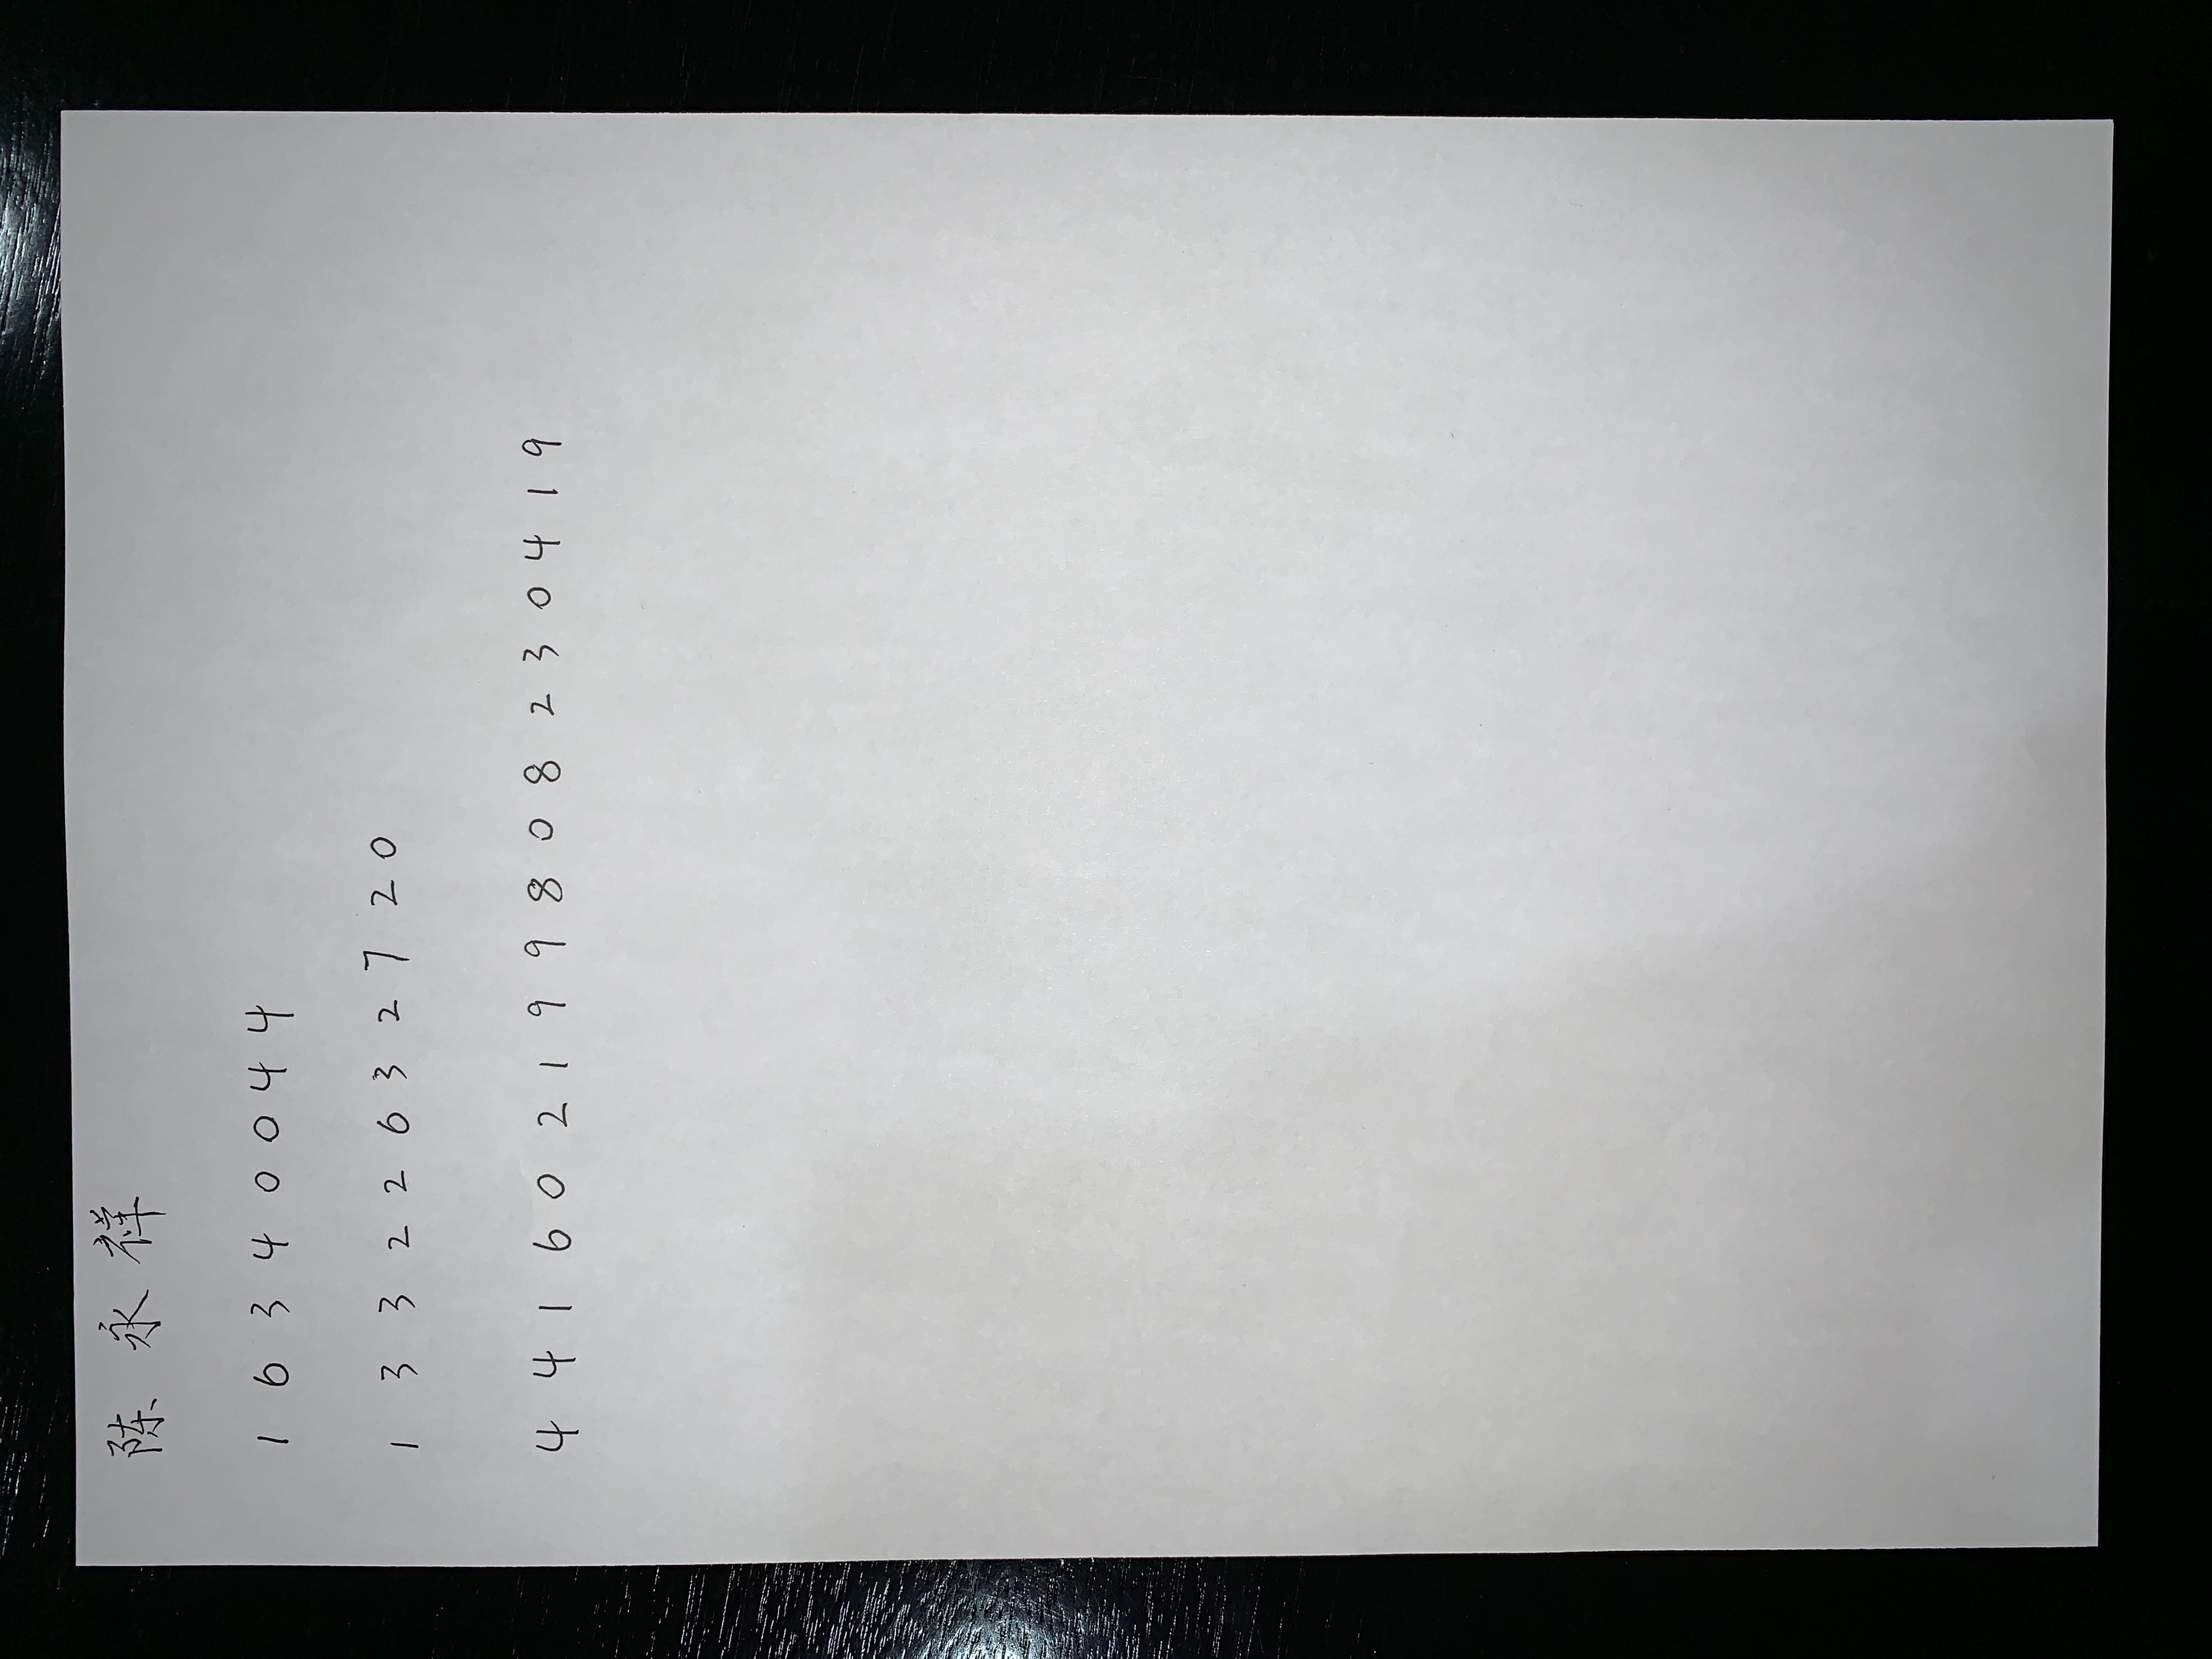 陈永祥
16340044
13322632720
441602199808230419